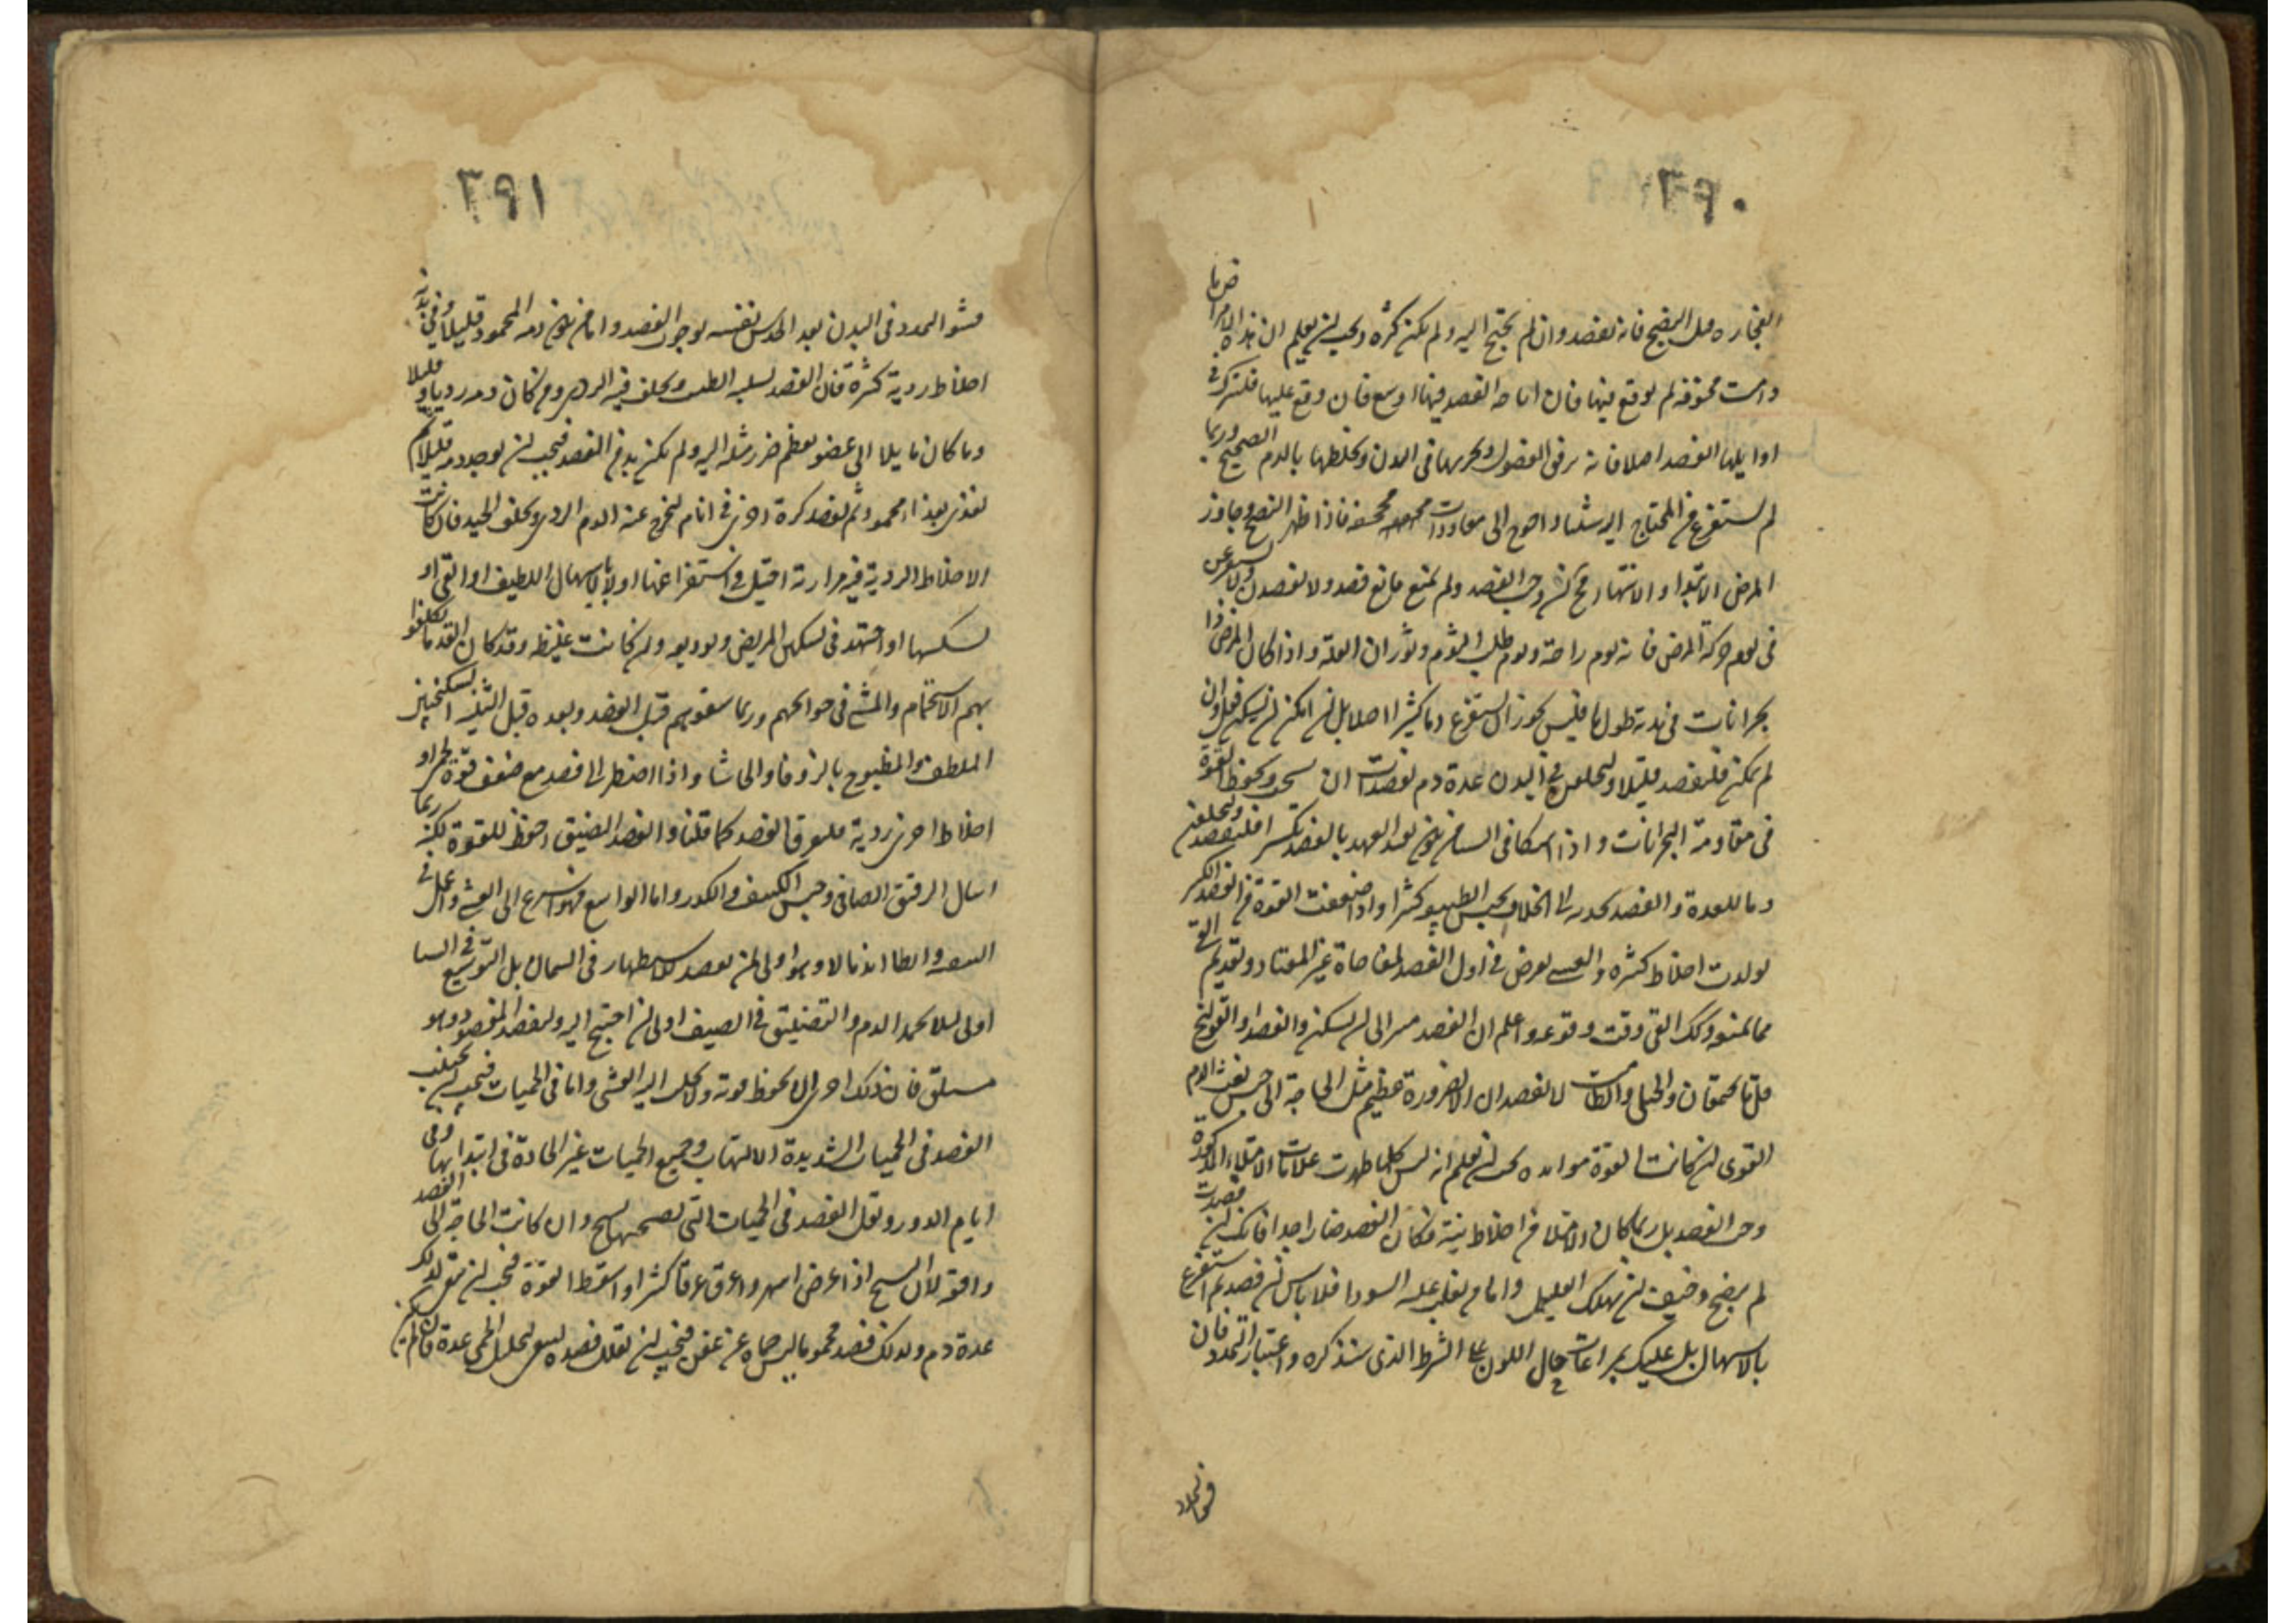 ٣٩٠
انفجاره قبل النضج فانه يفصد وان لم يحتج اليه ولم يكن كثرة ويجب ان يعلم ان هذه الامراض ما
دامت مخوفة لم يوقع فيها فان اباحة الفصد فيها اوسع فان وقع عليها فليترك في
اوايلها الفصد اصلا فانه يرقق الفضول ويجريها في البدن ويخلطها بالدم الصحيح وربما
لم يستفرغ من المحتاج اليه شيئا واحوج الى معاودات مجحفة فاذا ظهر النضج وجاوز
المرض الابتداء والانتهاء فح ان وجب الفصد ولم يمنع مانع فصد ولا يفصدن ولا يستفرغن
في يوم حركة المرض فانه يوم راحة ويوم طلب النوم وثوران العلة واذا كان المرض ذا
بحرانات في مدته طول ما فليس يجوز ان يستفرغ دما كثيرا اصلا بل ان امكن ان يسكن فعل وان
لم يمكن فليفصد قليلا وليخلف في البدن عدة دم لفصدات ان سنحت ولحفظ القوة
في مقاومة البحرانات واذا اشتكى في الشتاء من بعيد العهد بالفصد تكسيرا فليفصد وليخلف
دما للعدة والفصد يجذبه الى الخلاف يحبس الطبيعة كثيرا واذا ضعفت القوة من الفصد الكثير
تولدت اخلاط كثيرة والغشي يعرض في اول الفصد لمفاجاة غير المعتاد وتقديم القئ
مما يمنعه وكذلك القئ وقت وقوعه واعلم ان الفصد مثير الى ان يسكن والفصد والقولنج
قلما يجتمعان والحبلى والطامث لا تفصدان الا لضرورة عظيمة مثل الحاجة الى حبس نفث الدم
القوى ان كانت القوة مواتية يجب ان تعلم انه ليس كلما ظهرت علامات الامتلاء المذكورة
وجب الفصد بل ربما كان الامتلاء من اخلاط نية فكان الفصد ضارا جدا فانك ان فصدت
لم ينضج وخيف ان يهلك العليل واما من يغلب عليه السودا فلا باس ان يفصد ثم يستفرغ
بالاسهال بل عليك بمراعات حال اللون على الشرط الذي سنذكره واعتبار التمدد فان
فشو التمدد
٣٩١
فشو التمدد في البدن بعد الحدس نفسه بوجوب الفصد واما من يكون دمه المحمود قليلا وفي بدنه
اخلاط ردية كثيرة فان الفصد يسلبه الطيب ويخلف فيه الردي ومن كان دمه رديا وقليلا
وما كان مايلا الى عضو يعظم ضرر مثله اليه ولم يكن بد من الفصد فيجب ان يوخذ دمه قليلا ثم
يغذى بغذاء محمود ثم يفصد كرة اخرى في ايام ليخرج عنه الدم الردي ويخلف الجيد فان كانت
الاخلاط الردية فيه مرارية احتيل في استفراغها اولا بالاسهال اللطيف او القئ او
تسكينها او اجتهد في تسكين المريض وتوديعه وان كانت غليظة وقد كان القدماء يكلفونهم
بهم الاستحمام والمشي في حوائجهم وربما سقوهم قبل الفصد وبعده قبل التثنية السكنجبين
الملطف المطبوخ بالزوفا والحاشا واذا اضطر الى فصد مع ضعف قوة لحمى او
اخلاط اخرى ردية فليفرق الفصد كما قلنا والفصد الضيق احفظ للقوة لكنه ربما
اسال الرقيق الصافي وحبس الكثيف والكدر واما الواسع فهو اسرع الى الغشي واعمل في
التنقية وابطا اندمالا وهو اولى لمن يفصد للاستظهار وفي السمان بل التوسيع في الشتا
اولى لئلا يجمد الدم والتضييق في الصيف اولى ان احتيج اليه وليفصد المفصود وهو
مستلق فان ذلك احرى ان يحفظ قوته ولا يجلب اليه الغشي واما في الحميات فيجب ان يجتنب
الفصد في الحميات الشديدة الالتهاب وجميع الحميات غير الحادة في ابتدائها وفي
ايام الدور ويقلل الفصد في الحميات التي يصحبها تشنج وان كانت الحاجة الى الفصد
واقعة لان التشنج اذا عرض اسهر واعرق عرقا كثيرا واسقط القوة فيجب ان يبقى لذلك
عدة دم وكذلك فصد محموما ليس حماه عن عفن فيجب ان يقلل فصده ليبقى لتحليل الحمى عدة فان لم يكن